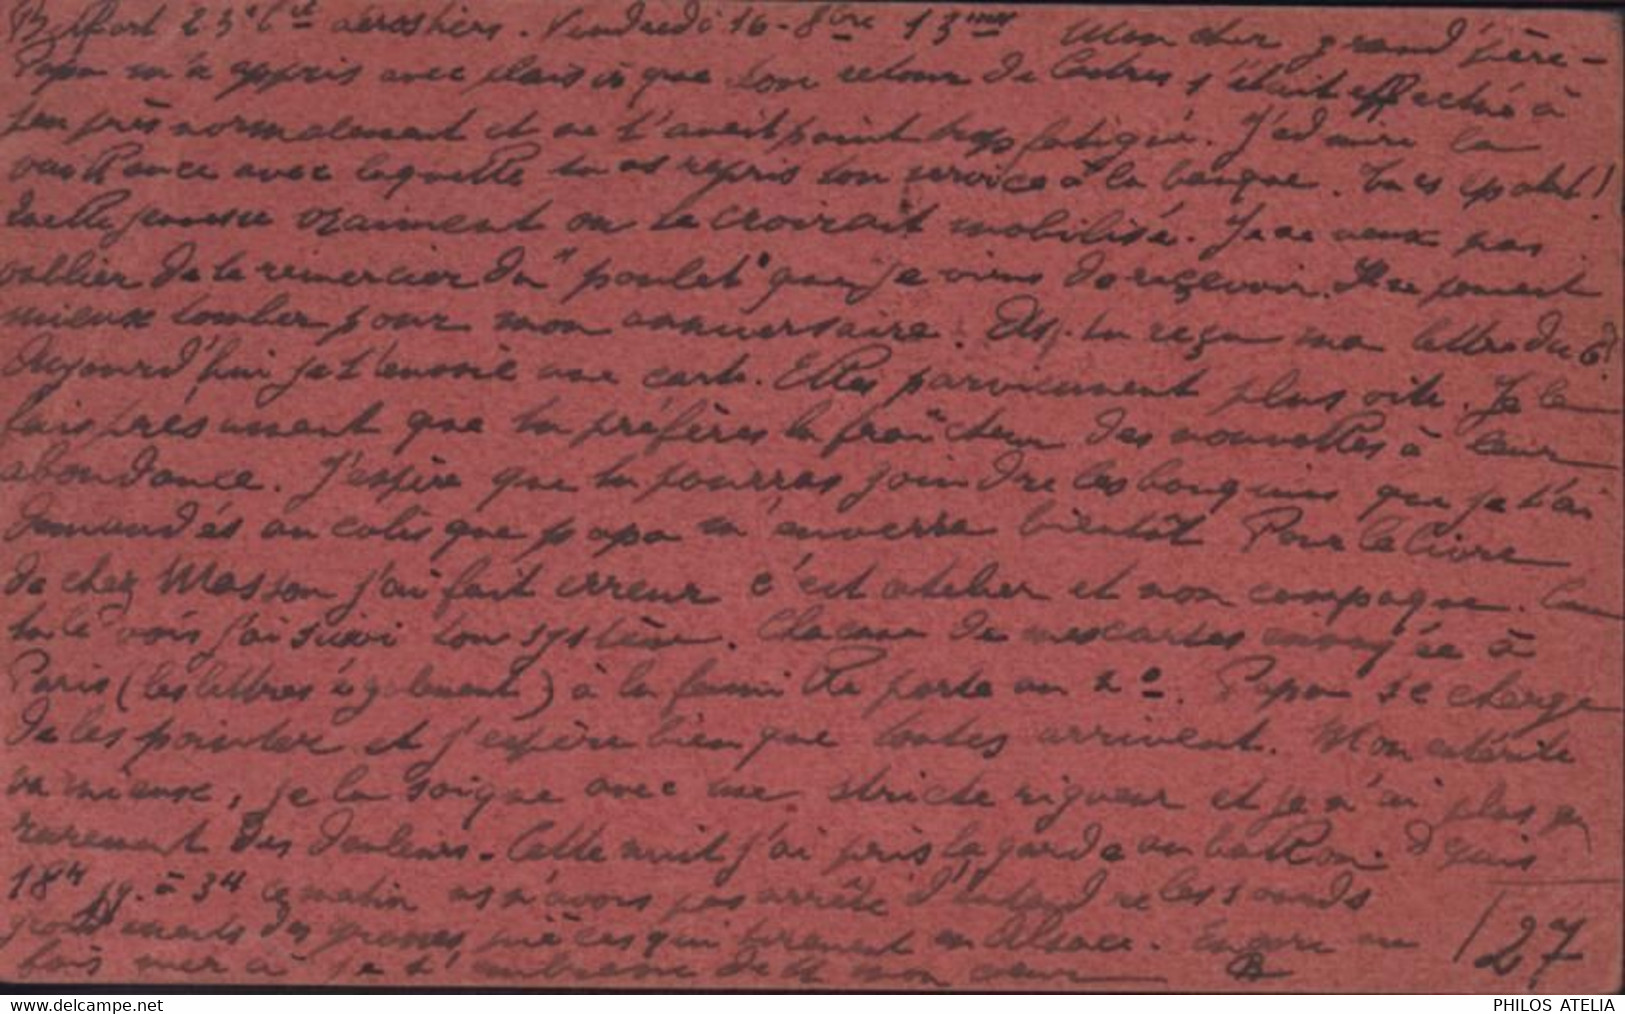 Belfort 23e Cie aérostiers. Vendredi 16 - 8bre 13 Mon cher grand'père -
Papa m'a appris avec plaisir que ton retour de Castres s'était effectué à
peu près normalement et ne t'avait point trop fatigué. J'admire la
vaillance avec laquelle tu as repris ton service à la banque. Tu es épatant!
Quelle jeunesse vraiment on te croirait mobilisé. Je ne veux pas
oublier de te remercier du "poulet" que je viens de reçevoir. Il ne pouvait
mieux tomber pour mon anniversaire. As-tu reçu ma lettre du 6?
Aujourd'hui je t'envoie une carte. Elles parviennent plus vite. Je le
fais présumant que tu préfères la fraîcheur des nouvelles à leur
abondance. J'espère que tu pourras joindre les bouquins que je t'ai
demandés au colis que papa m'enverra bientôt Pour le livre
de chez Masson j'ai fait erreur c'est atelier et non campagne.
tu le vois j'ai suivi ton système. Chacune de mes cartes envoyée à
Paris (les lettres également) à la famille porte un no. Papa se charge
de les pointer et j'espère bien que toutes arrivent. Mon entérite
va mieux, je la soigne avec une stricte rigueur et je n'ai plus que
rarement des douleurs. Cette nuit j'ai pris la garde au ballon. Depuis
18h jq. à 3h ce matin ns n'avons pas arrêté d'entendre les sourds
grondements des grosses pièces qui tiraient en Alsace. Encore une
fois merci je t'embrasse de tt mon cœur
27
www.delcampe.net
PHILOS ATELIA